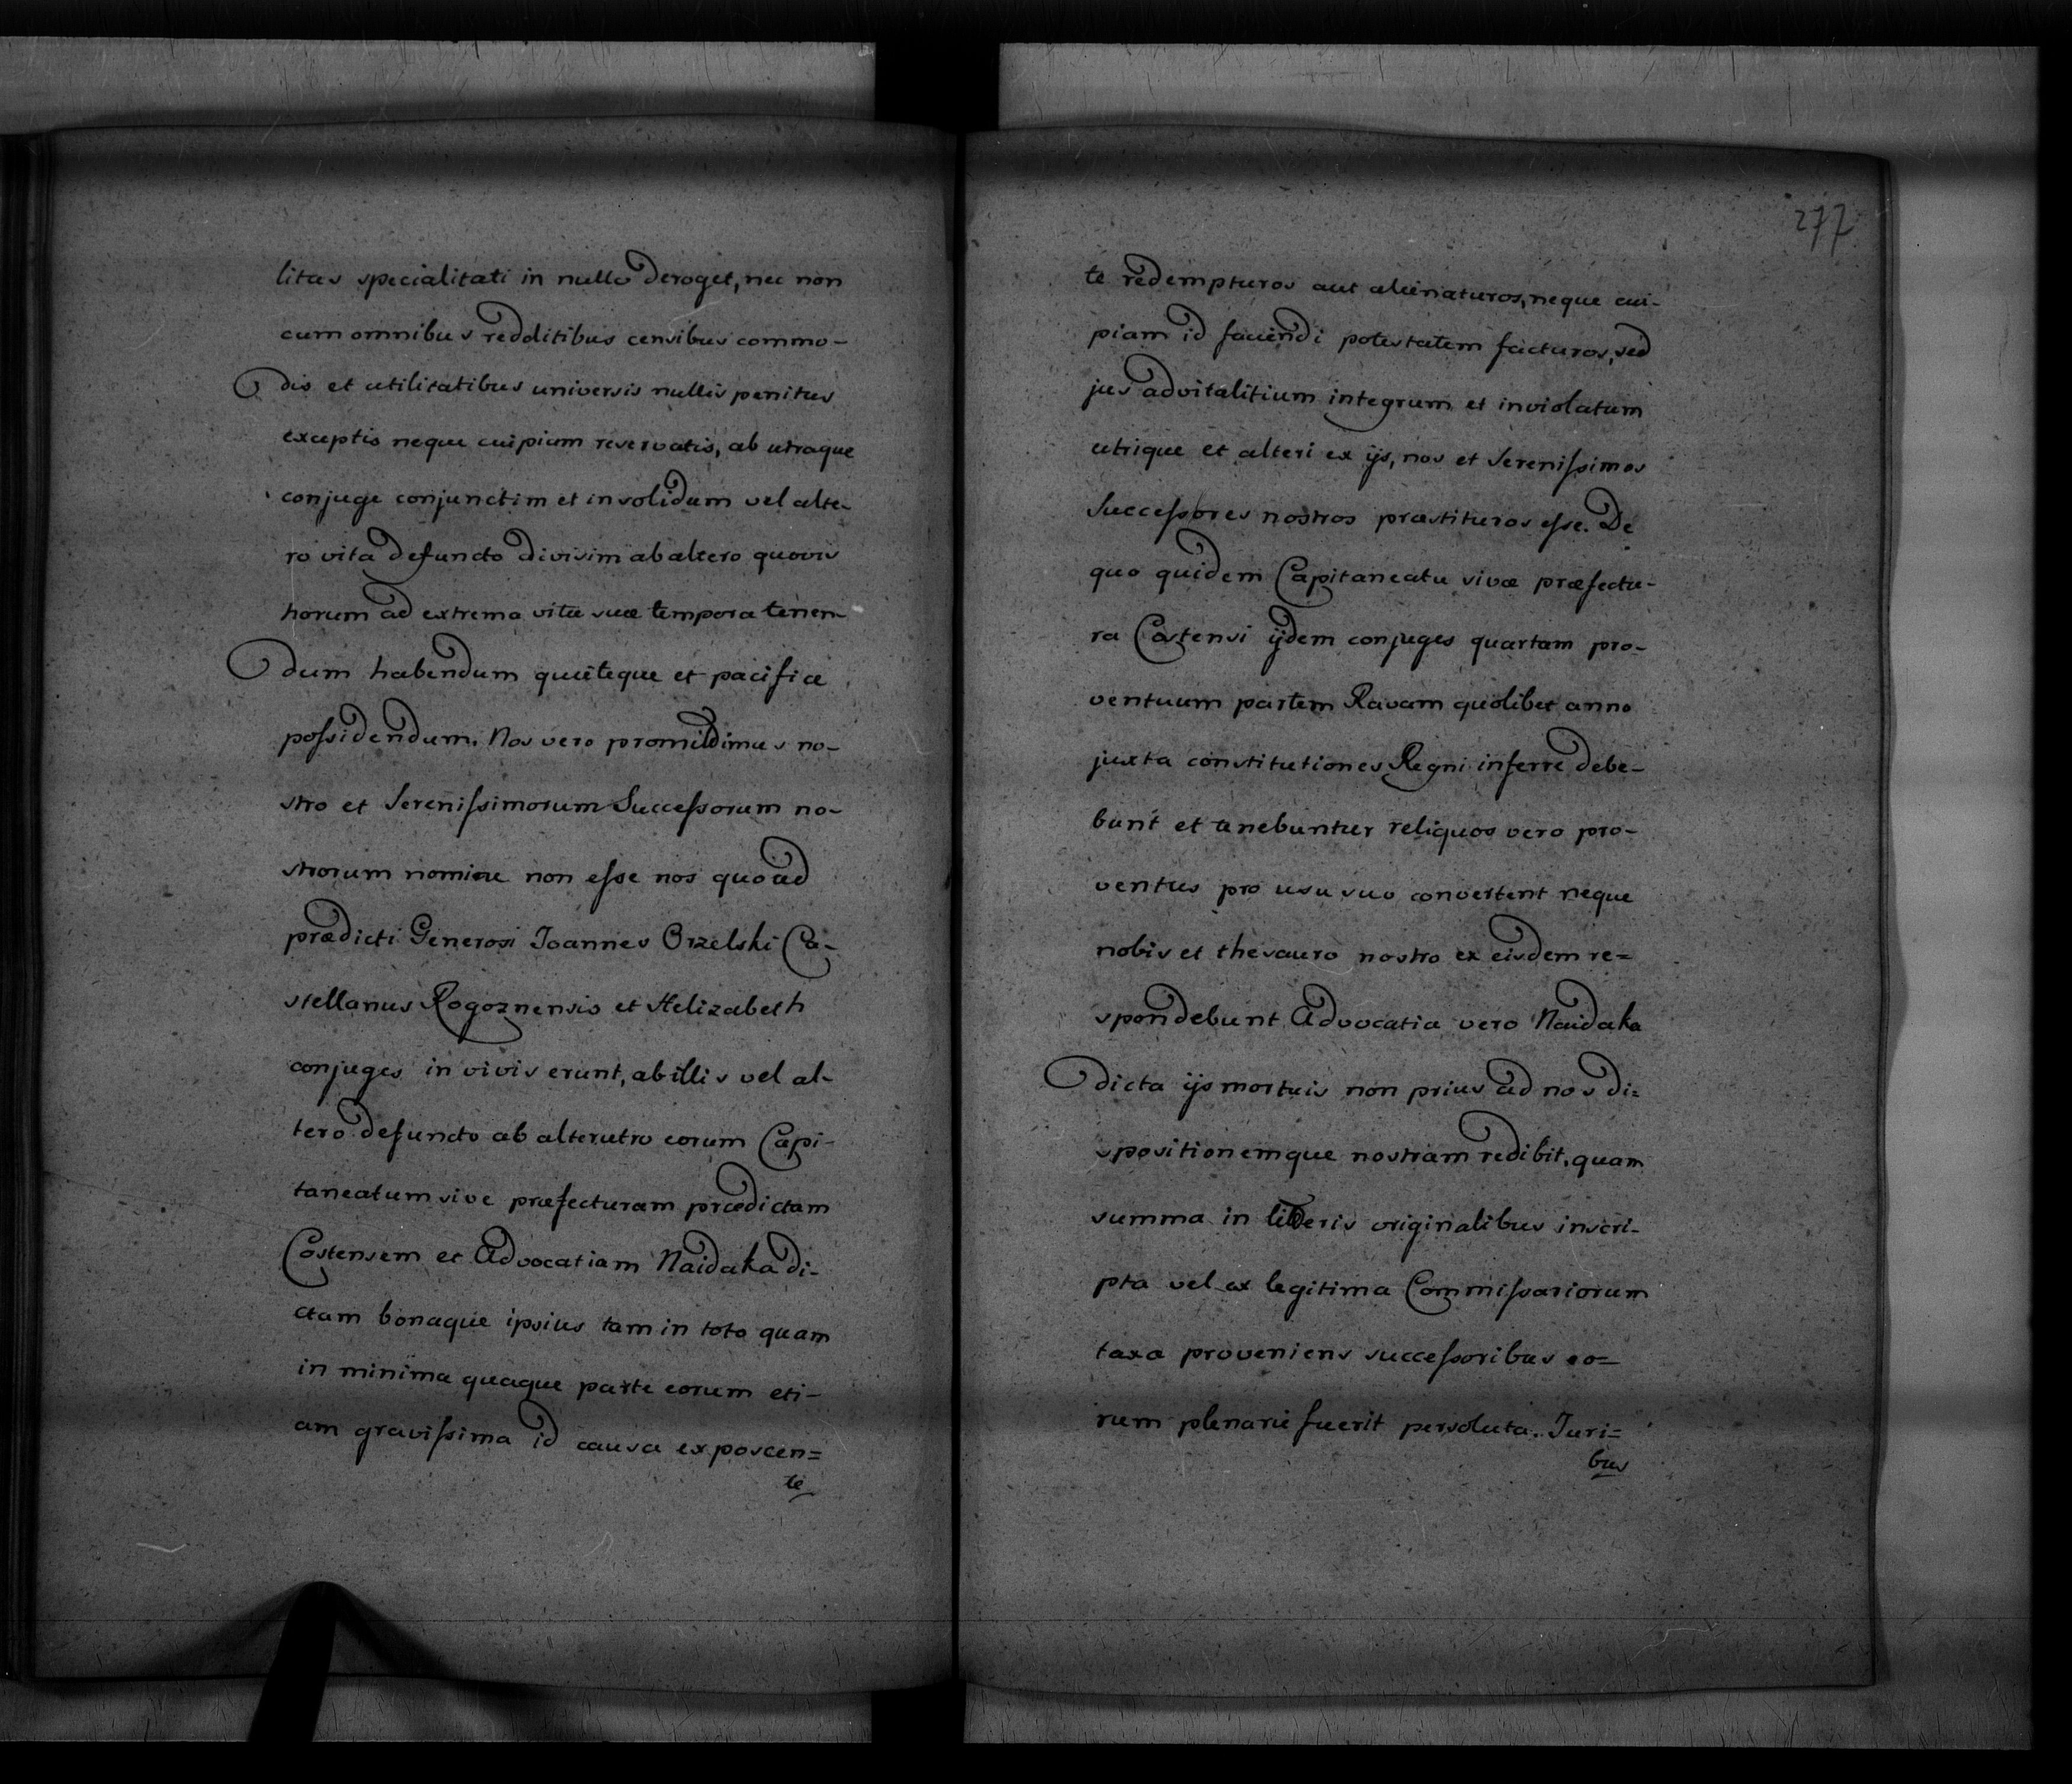 litas specialitati in nullo deroget, nec non
cum omnibus redditibus censibus commo-
dis et utilitatibus universis nullis penitus
exceptis neque cuipium reservatis, ab utraque
conjuge conjunctim et in solidum vel alte-
ro vita defuncto divisim ab altero quovis
horum ad extrema vitæ suæ tempora tenen-
dum habendum quieteque et pacifice
possidendum. Nos vero promittimus no-
stro et Serenissimorum Successorum no-
strorum nomine non esse nos quoad
prædicti Generosi Joannes Orzelski Ca-
stellanus Rogoznensis et Helizabeth
conjuges in vivis erunt, ab illis vel al-
tero defuncto ab alterutro eorum Capi-
taneatum sive præfecturam prædictam
Costensem et Advocatiam Naidaka di-
ctam bonaque ipsius tam in toto quam
in minima quaque parte eorum eti-
am gravissima id causa exposcen=
te
277
te redempturos aut alienaturos, neque cui-
piam id faciendi potestatem facturos, sed
jus advitalitium integrum et inviolatum
utrique et alteri ex ijs, nos et Serenissimos
Successores nostros præstituros esse. De
quo quidem Capitaneatu sivæ præfectu-
ra Costensi ijdem conjuges quartam pro-
ventuum partem Ravam quolibet anno
juxta constitutiones Regni inferre debe-
bunt et tenebuntur reliquos vero pro-
ventus pro usu suo convertent neque
nobis et thesauro nostro ex eisdem re=
spondebunt Advocatia vero Naidaka
dicta ijs mortuis non prius ad nos di=
spositionemque nostram redibit, quam
summa in litteris originalibus inscri-
pta vel ex legitima Commissariorum
taxa proveniens successoribus eo=
rum plenarie fuerit persoluta. Juri=
bus